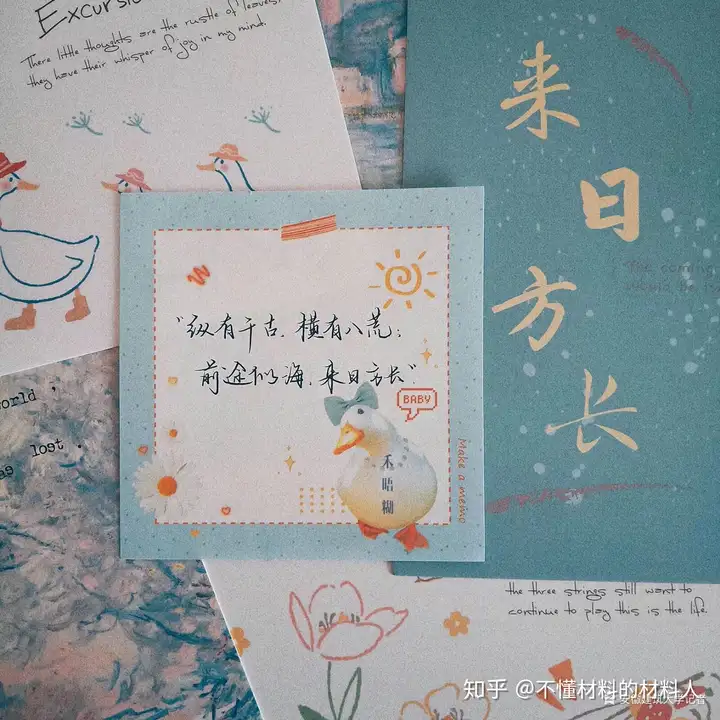 EXCURSIO
There little thoughts are the rustle of leaves;
they have their whisper of joy in my mind.
来日方长
The coming
would be
"纵有千古，横有八荒；
前途似海，来日方长"
BABY
禾晤糊
Make a memo
orld ,
as lost .
the three strings still want to
continue to play this is the life.
知乎 @不懂材料的材料人
安徽建筑大学记者